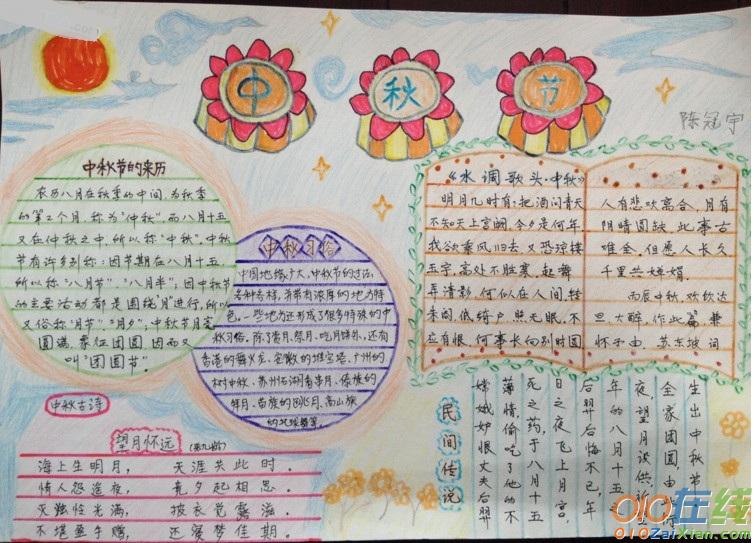 中 秋 节
陈冠宇
中秋节的来历
农历八月在秋季的中间,为秋季
的第2个月,称为"仲秋",而八月十五
又在仲秋之中,所以称"中秋"。中秋
节有许多别称:因节期在八月十五
所以称"八月节"、"八月半";因中秋节
的主要活动都是围绕"月"进行,所以
又俗称"月节"、"月夕";中秋节月亮
圆满,象征团圆,因而又
叫"团圆节"。
中秋习俗
中国地缘广大,中秋节的习俗,
各种各样,并带有浓厚的地方特
色,一些地方还形成了很多特殊的中
秋习俗。除了赏月、祭月、吃月饼外,还有
香港的舞火龙、安徽的堆宝塔、广州的
树中秋、苏州石湖看串月、傣族的
拜月、苗族的跳月、高山族
的托球舞等。
《水调歌头·中秋》
明月几时有,把酒问青天
不知天上宫阙,今夕是何年,
我欲乘风归去,又恐琼楼
玉宇,高处不胜寒,起舞
弄清影,何似在人间,转
朱阁,低绮户,照无眠,不
应有恨,何事长向别时圆
人有悲欢离合,月有
阴晴圆缺,此事古
难全,但愿人长久
千里共婵娟。
丙辰中秋,欢饮达
旦大醉,作此篇,兼
怀子由。苏东坡词
中秋古诗
望月怀远(张九龄)
海上生明月,天涯共此时。
情人怨遥夜,竟夕起相思。
灭烛怜光满,披衣觉露滋。
不堪盈手赠,还寝梦佳期。
民间传说
嫦娥妒恨丈夫后羿
薄情,偷吃了他的不
死之药,于八月十五
日之夜飞上月宫,
后羿后悔不已,年
年的八月十五
夜,望月设供,
全家团圆,由
生出中秋节
010在线
010ZaiXian.com